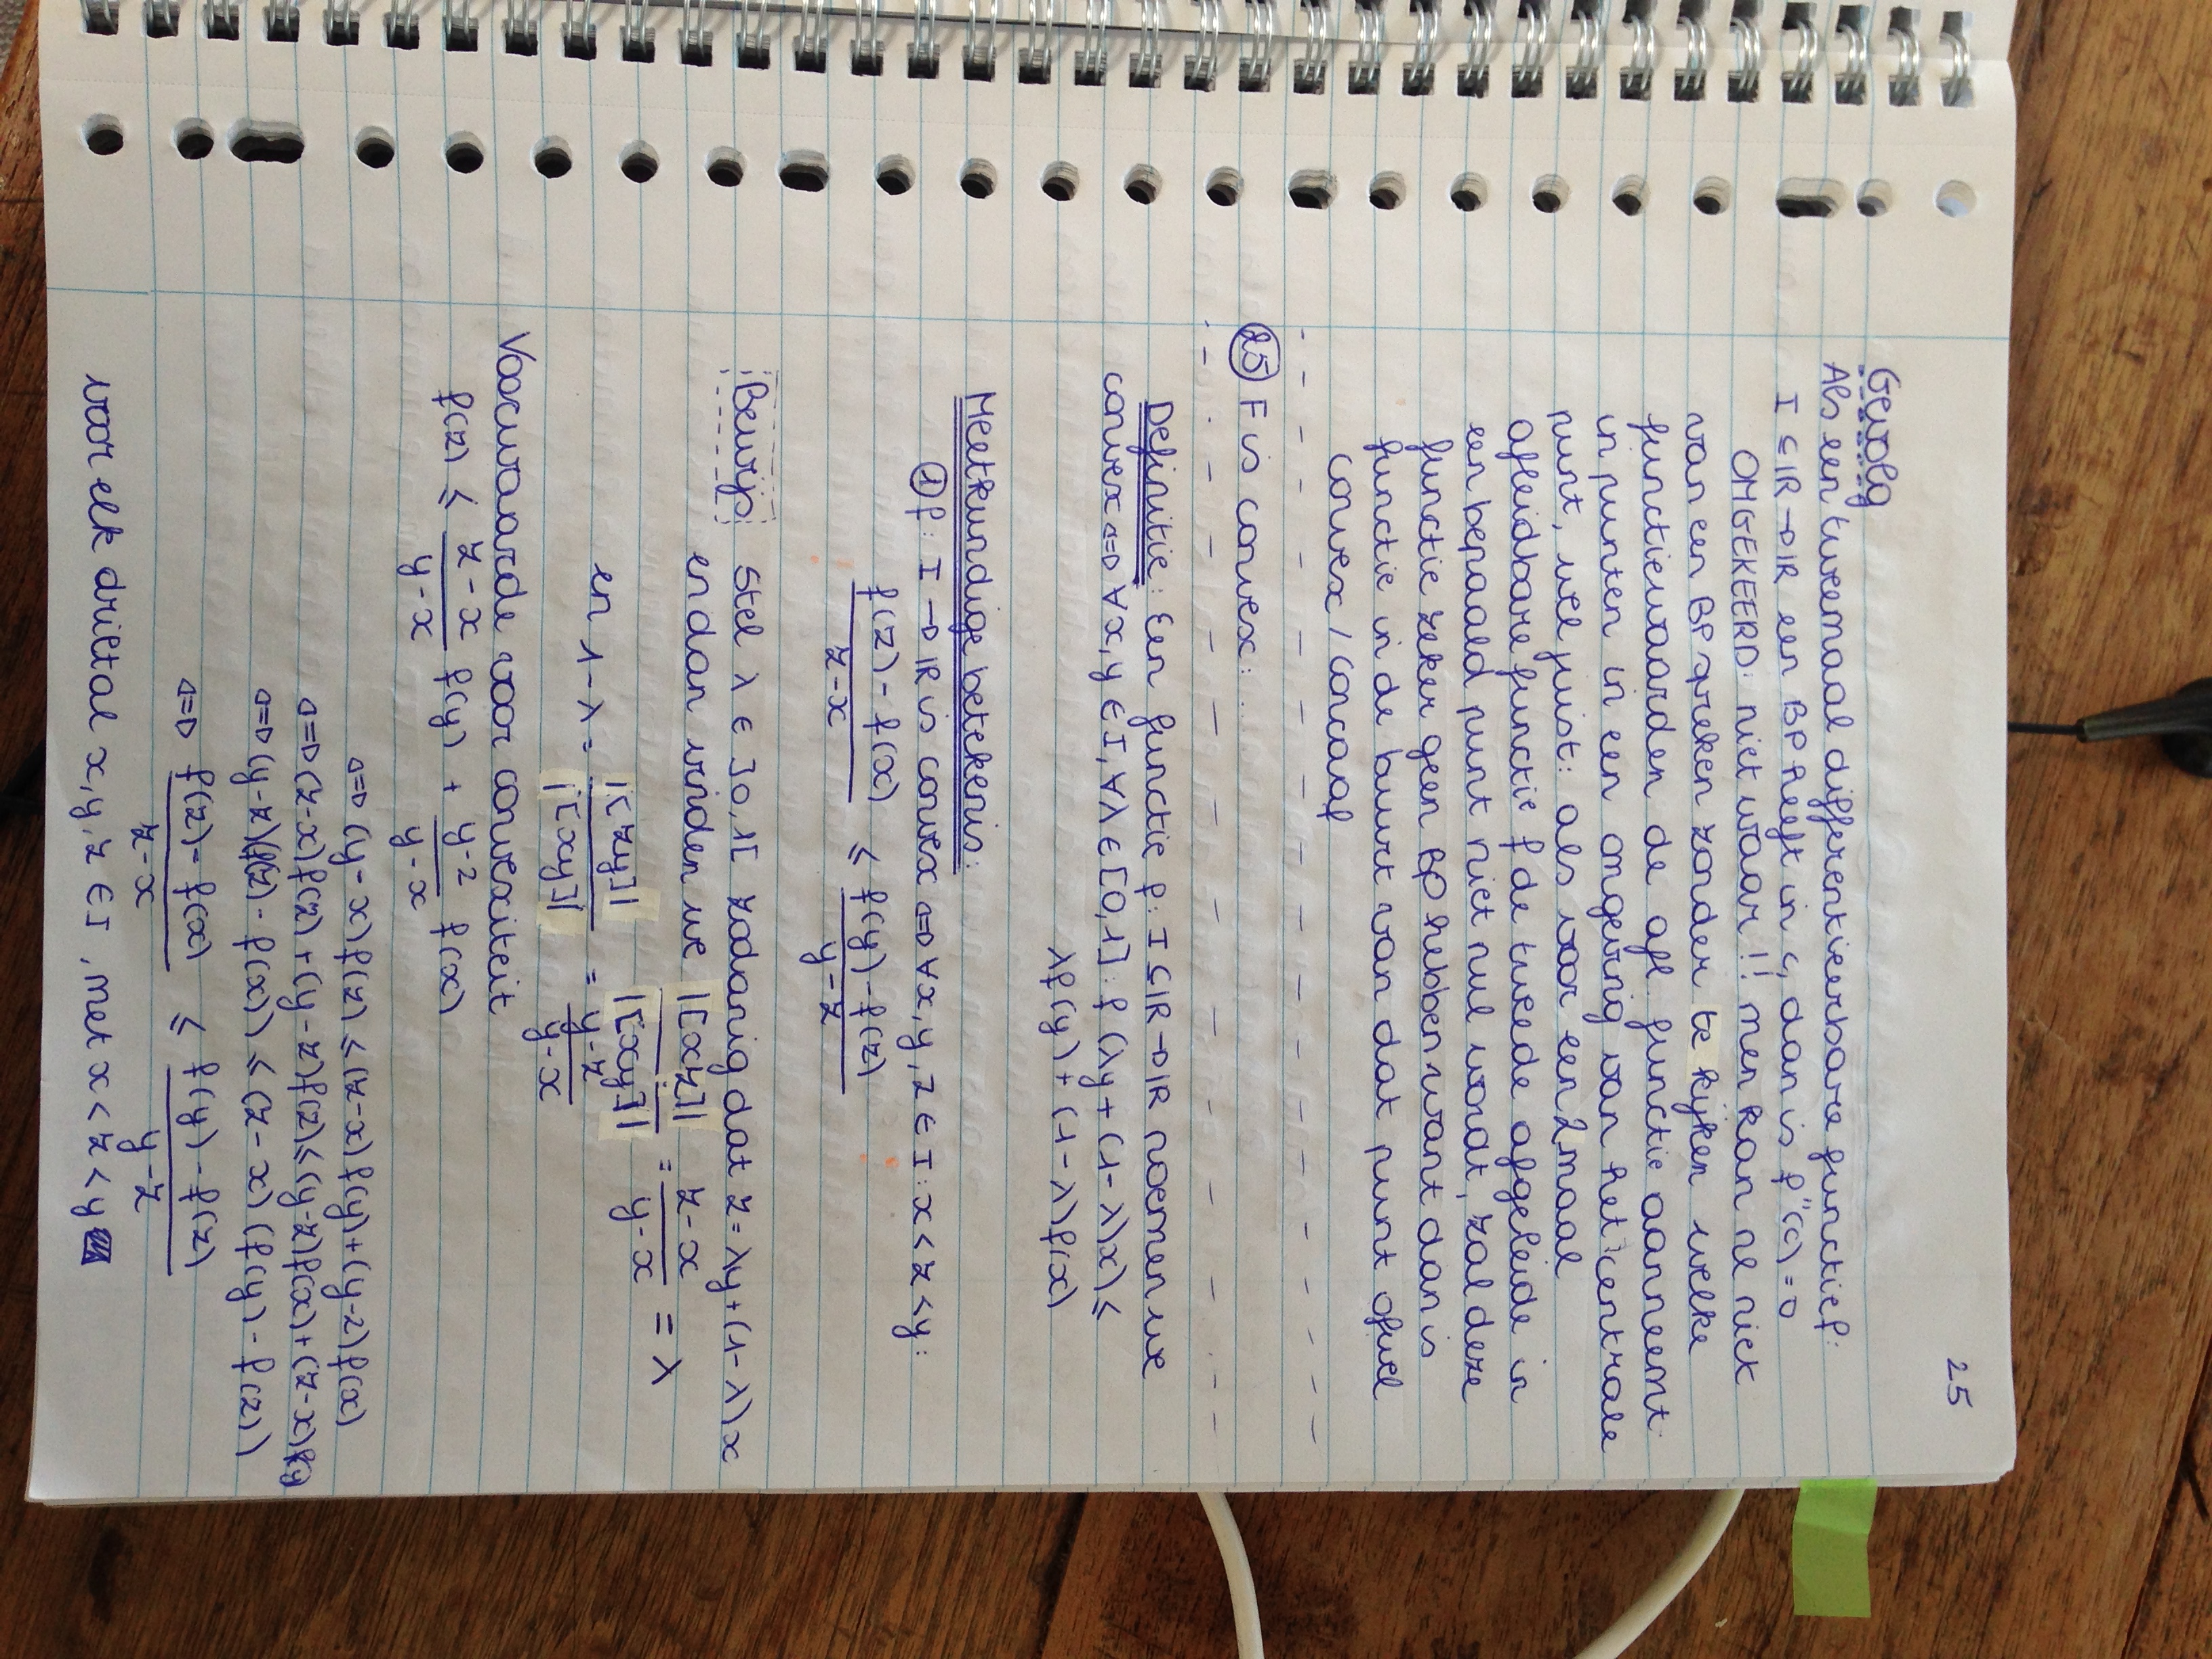 25
Gevolg
Als een tweemaal differentieerbare functie f:
I ⊆ IR → IR een BP heeft in c, dan is f''(c) = 0
OMGEKEERD: niet waar!! men kan nl niet
van een BP spreken zonder te kijken welke
functiewaarden de afl. functie aanneemt
in punten in een omgeving van het centrale
punt, wel juist: als voor een 2maal
afleidbare functie f de tweede afgeleide in
een bepaald punt niet nul wordt, zal deze
functie zeker geen BP hebben want dan is
functie in de buurt van dat punt ofwel
convex / concaaf
25 F is convex: ....
Definitie: Een functie f: I ⊆ IR → IR noemen we
convex ⇔ ∀x, y ∈ I, ∀λ ∈ [0,1]: f (λy + (1-λ)x) ≤
λf(y) + (1-λ)f(x)
Meetkundige betekenis:
① f: I → IR is convex ⇔ ∀x, y, z ∈ I: x < z < y:
f(z) - f(x) / z-x ≤ f(y) - f(z) / y-z
Bewijs Stel λ ∈ ]0,1[ zodanig dat z = λy + (1-λ)x
en dan vinden we |[xz]| / |[xy]| = z-x / y-x = λ
en 1-λ = |[zy]| / |[xy]| = y-z / y-x
Voorwaarde voor convexiteit
f(z) ≤ z-x / y-x f(y) + y-z / y-x f(x)
⇔ (y-x) f(z) ≤ (z-x) f(y) + (y-z) f(x)
⇔ (z-x) f(z) + (y-z) f(z) ≤ (y-z) f(x) + (z-x) f(y)
⇔ (y-z)(f(z) - f(x)) ≤ (z-x) (f(y) - f(z))
⇔ f(z) - f(x) / z-x ≤ f(y) - f(z) / y-z
voor elk drietal x, y, z ∈ I, met x < z < y